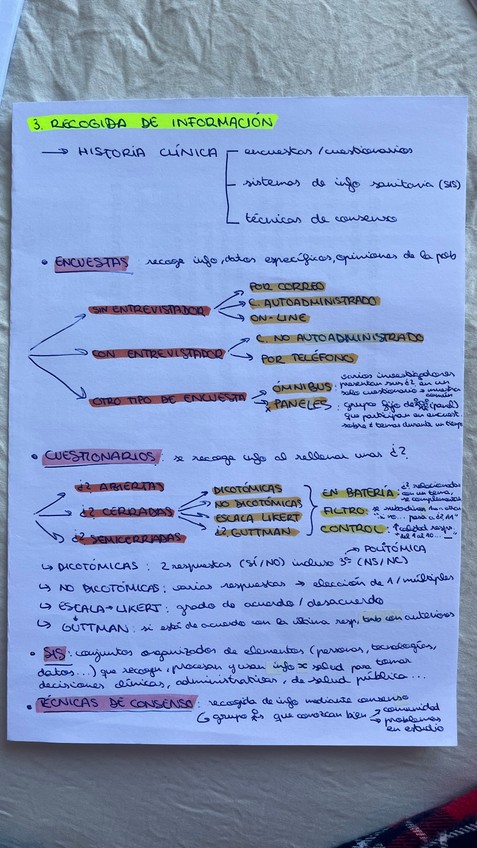 3. RECOGIDA DE INFORMACIÓN
→ HISTORIA CLÍNICA
encuestas/cuestionarios
sistemas de info sanitaria (SIS)
técnicas de consenso
• ENCUESTAS recoge info, datos específicos, opiniones de la pob
SIN ENTREVISTADOR
POR CORREO
C. AUTOADMINISTRADO
ON-LINE
CON ENTREVISTADOR
C. NO AUTOADMINISTRADO
POR TELÉFONO
OTRO TIPO DE ENCUESTA
ÓMNIBUS: varios investigadores
presentan sus ¿? en un
solo cuestionario a muestra
común
PANELES: grupo fijo de (panel)
que participan en encuestas
sobre ≠ temas durante un tiempo
• CUESTIONARIOS: se recoge info al rellenar unas ¿?
¿? ABIERTAS
¿? CERRADAS
¿? SEMICERRADAS
DICOTÓMICAS
NO DICOTÓMICAS
ESCALA LIKERT
¿? GUTTMAN
EN BATERÍA: ¿? relacionadas
con un tema,
se complementan
FILTRO:
CONTROL: ↑ calidad resp.
→ POLITÓMICA
↳ DICOTÓMICAS: 2 respuestas (SÍ/NO) incluso 3ª (NS/NC)
↳ NO DICOTÓMICAS: varias respuestas → elección de 1/múltiples
↳ ESCALA → LIKERT: grado de acuerdo/desacuerdo
↳ GUTTMAN: si está de acuerdo con la última resp, tmb con anteriores
• SIS: conjuntos organizados de elementos (personas, tecnologías,
datos...) que recogen, procesan y usan info x salud para tomar
decisiones clínicas, administrativas, de salud pública...
• TÉCNICAS DE CONSENSO: recogida de info mediante consenso
↳ grupo que conozcan bien
comunidad
problemas
en estudio